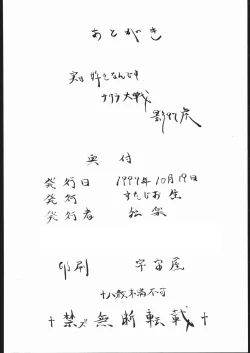 あとがき
実は好きなんです
サクラ大戦
影虎
奥付
発行日 1997年10月19日
発行 すたじお生
発行者
印刷 宇宙屋
十八歳未満不可
†禁ズ無断転載†